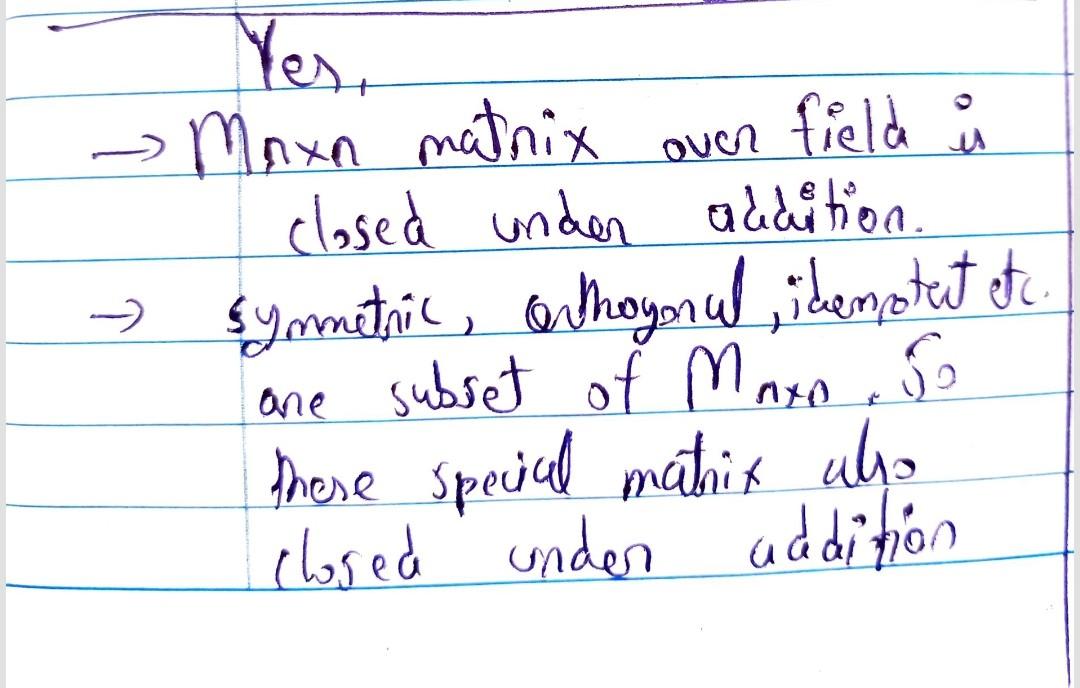 Yes,
→ Mnxn matrix over field is
closed under addition.
→ symmetric, orthogonal, idempotent etc.
are subset of Mnxn. So
these special matrix also
closed under addition